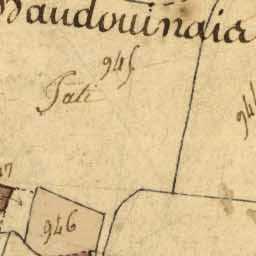 Baudouinair
945
Pati
94
47
946